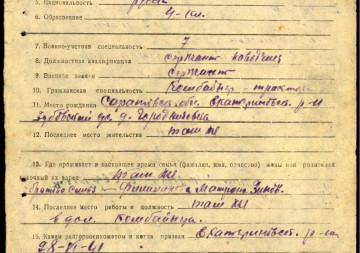 5. Национальность русск
6. Образование 4 кл.
7. Военно-учетная специальность 7
8. Должностная квалификация сержант наводчик
9. Воинское звание Сержант
10. Гражданская специальность Комбайнер-тракт
11. Место рождения Саратовск. обл. Екатериновск. р-н
д.
12. Последнее место жительства там же
13. Где проживает в настоящее время семья (фамилия, имя, отчество) жены или родителей
их адрес там же
Матрена
14. Последнее место работы и должность там же
в дол. Комбайнера
15. Каким райвоенкоматом и когда призван Екатериновск. р-н
28-VI-41